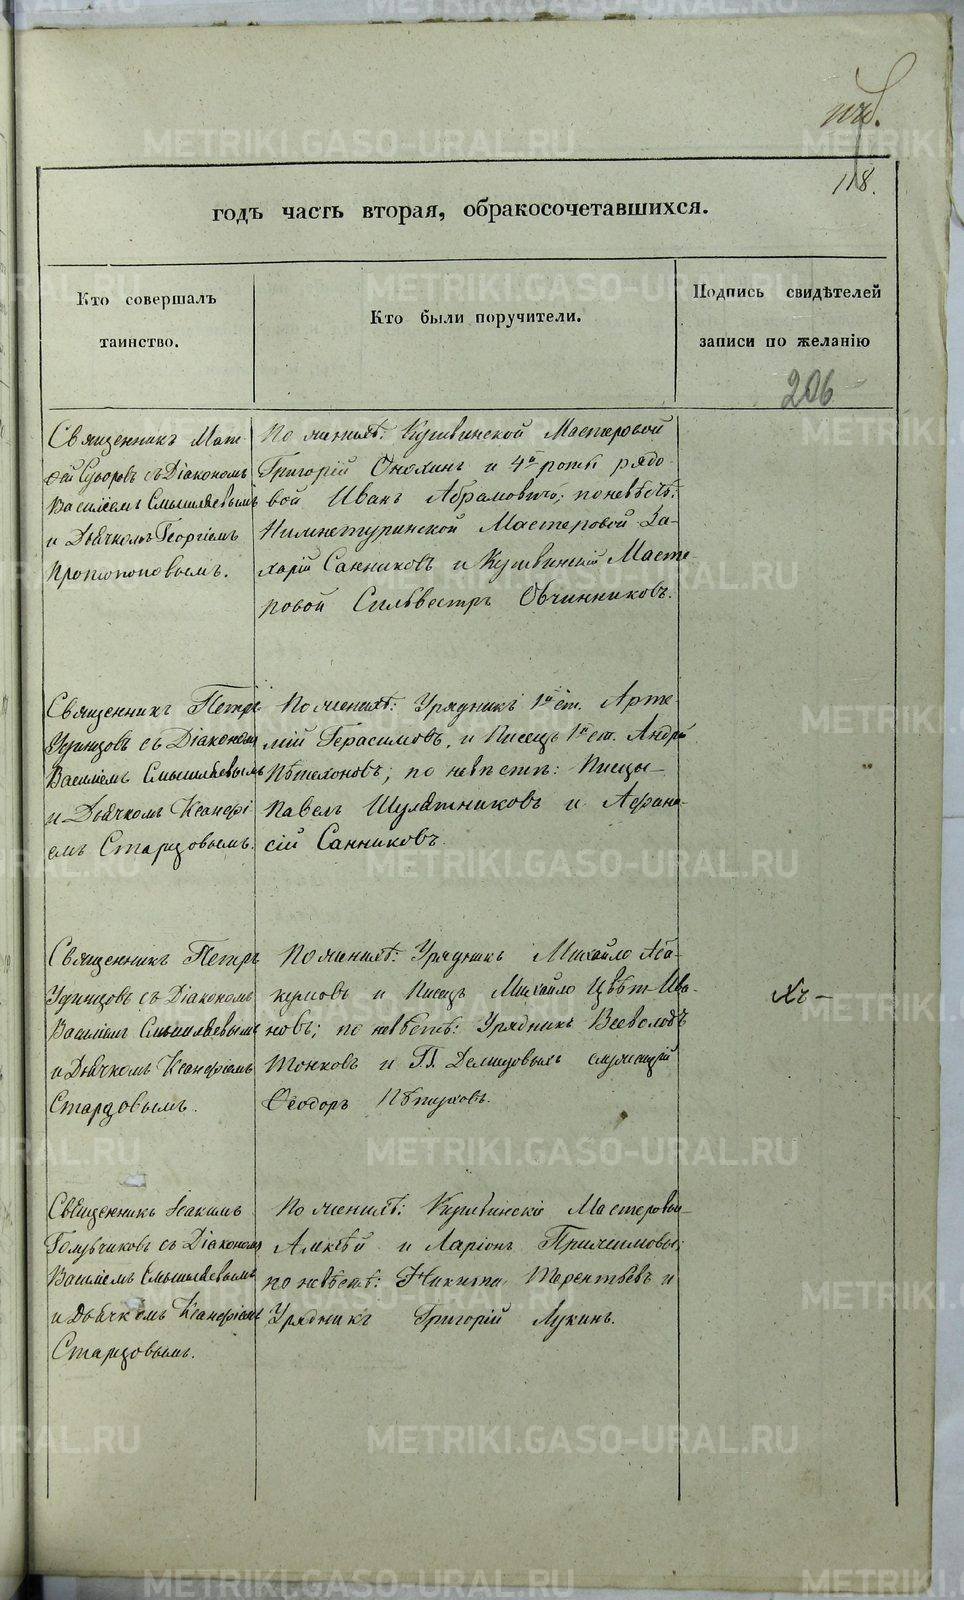 118.
годъ часть вторая, обракосочетавшихся.
Кто совершалъ
таинство.
Кто были поручители.
Подпись свидѣтелей
записи по желанію
206
Священникъ Мат-
ѳій Суворовъ съ Діакономъ
Василіемъ Смышляевымъ
и Дьячкомъ Георгіемъ
Протопоповымъ.
По женихѣ: Кушвинской Мастеровой
Григорій Онохинъ и 4й роты рядо-
вой Иванъ Абрамовичъ; по невѣстѣ:
Нижнетуринской Мастеровой За-
харій Санниковъ и Кушвинскій Масте-
ровой Сильвестръ Овчинниковъ.
Священникъ Петръ
Удинцовъ съ Діакономъ
Василіемъ Смышляевымъ
и Дьячкомъ Ксенофі
емъ Старцовымъ.
По женихѣ: Урядникъ 1й ст. Арте-
мій Герасимовъ, и Писецъ 1й ст. Андрей
Пѣтелоновъ; по невѣстѣ: Писцы
Павелъ Шулятниковъ и Афана-
сій Санниковъ.
Священникъ Петръ
Удинцовъ съ Діакономъ
Василіемъ Смышляевымъ
и Дьячкомъ Ксенофіемъ
Старцовымъ.
По женихѣ: Урядникъ Михайло Аба-
кумовъ и Писецъ Михайло Ива-
новъ; по невѣстѣ: Урядникъ Всеволодъ
Тонковъ и Гг. Демидовыхъ служащій
Ѳеодоръ Пѣтуховъ.
Священникъ Іоакимъ
Голубчиковъ съ Діакономъ
Василіемъ Смышляевымъ
и Дьячкомъ Ксенофіемъ
Старцовымъ.
По женихѣ: Кушвинскіе Мастеровые
Алексѣй и Ларіонъ
по невѣстѣ: Никита Терентьевъ и
Урядникъ Григорій Лукинъ.
METRIKI.GASO-URAL.RU